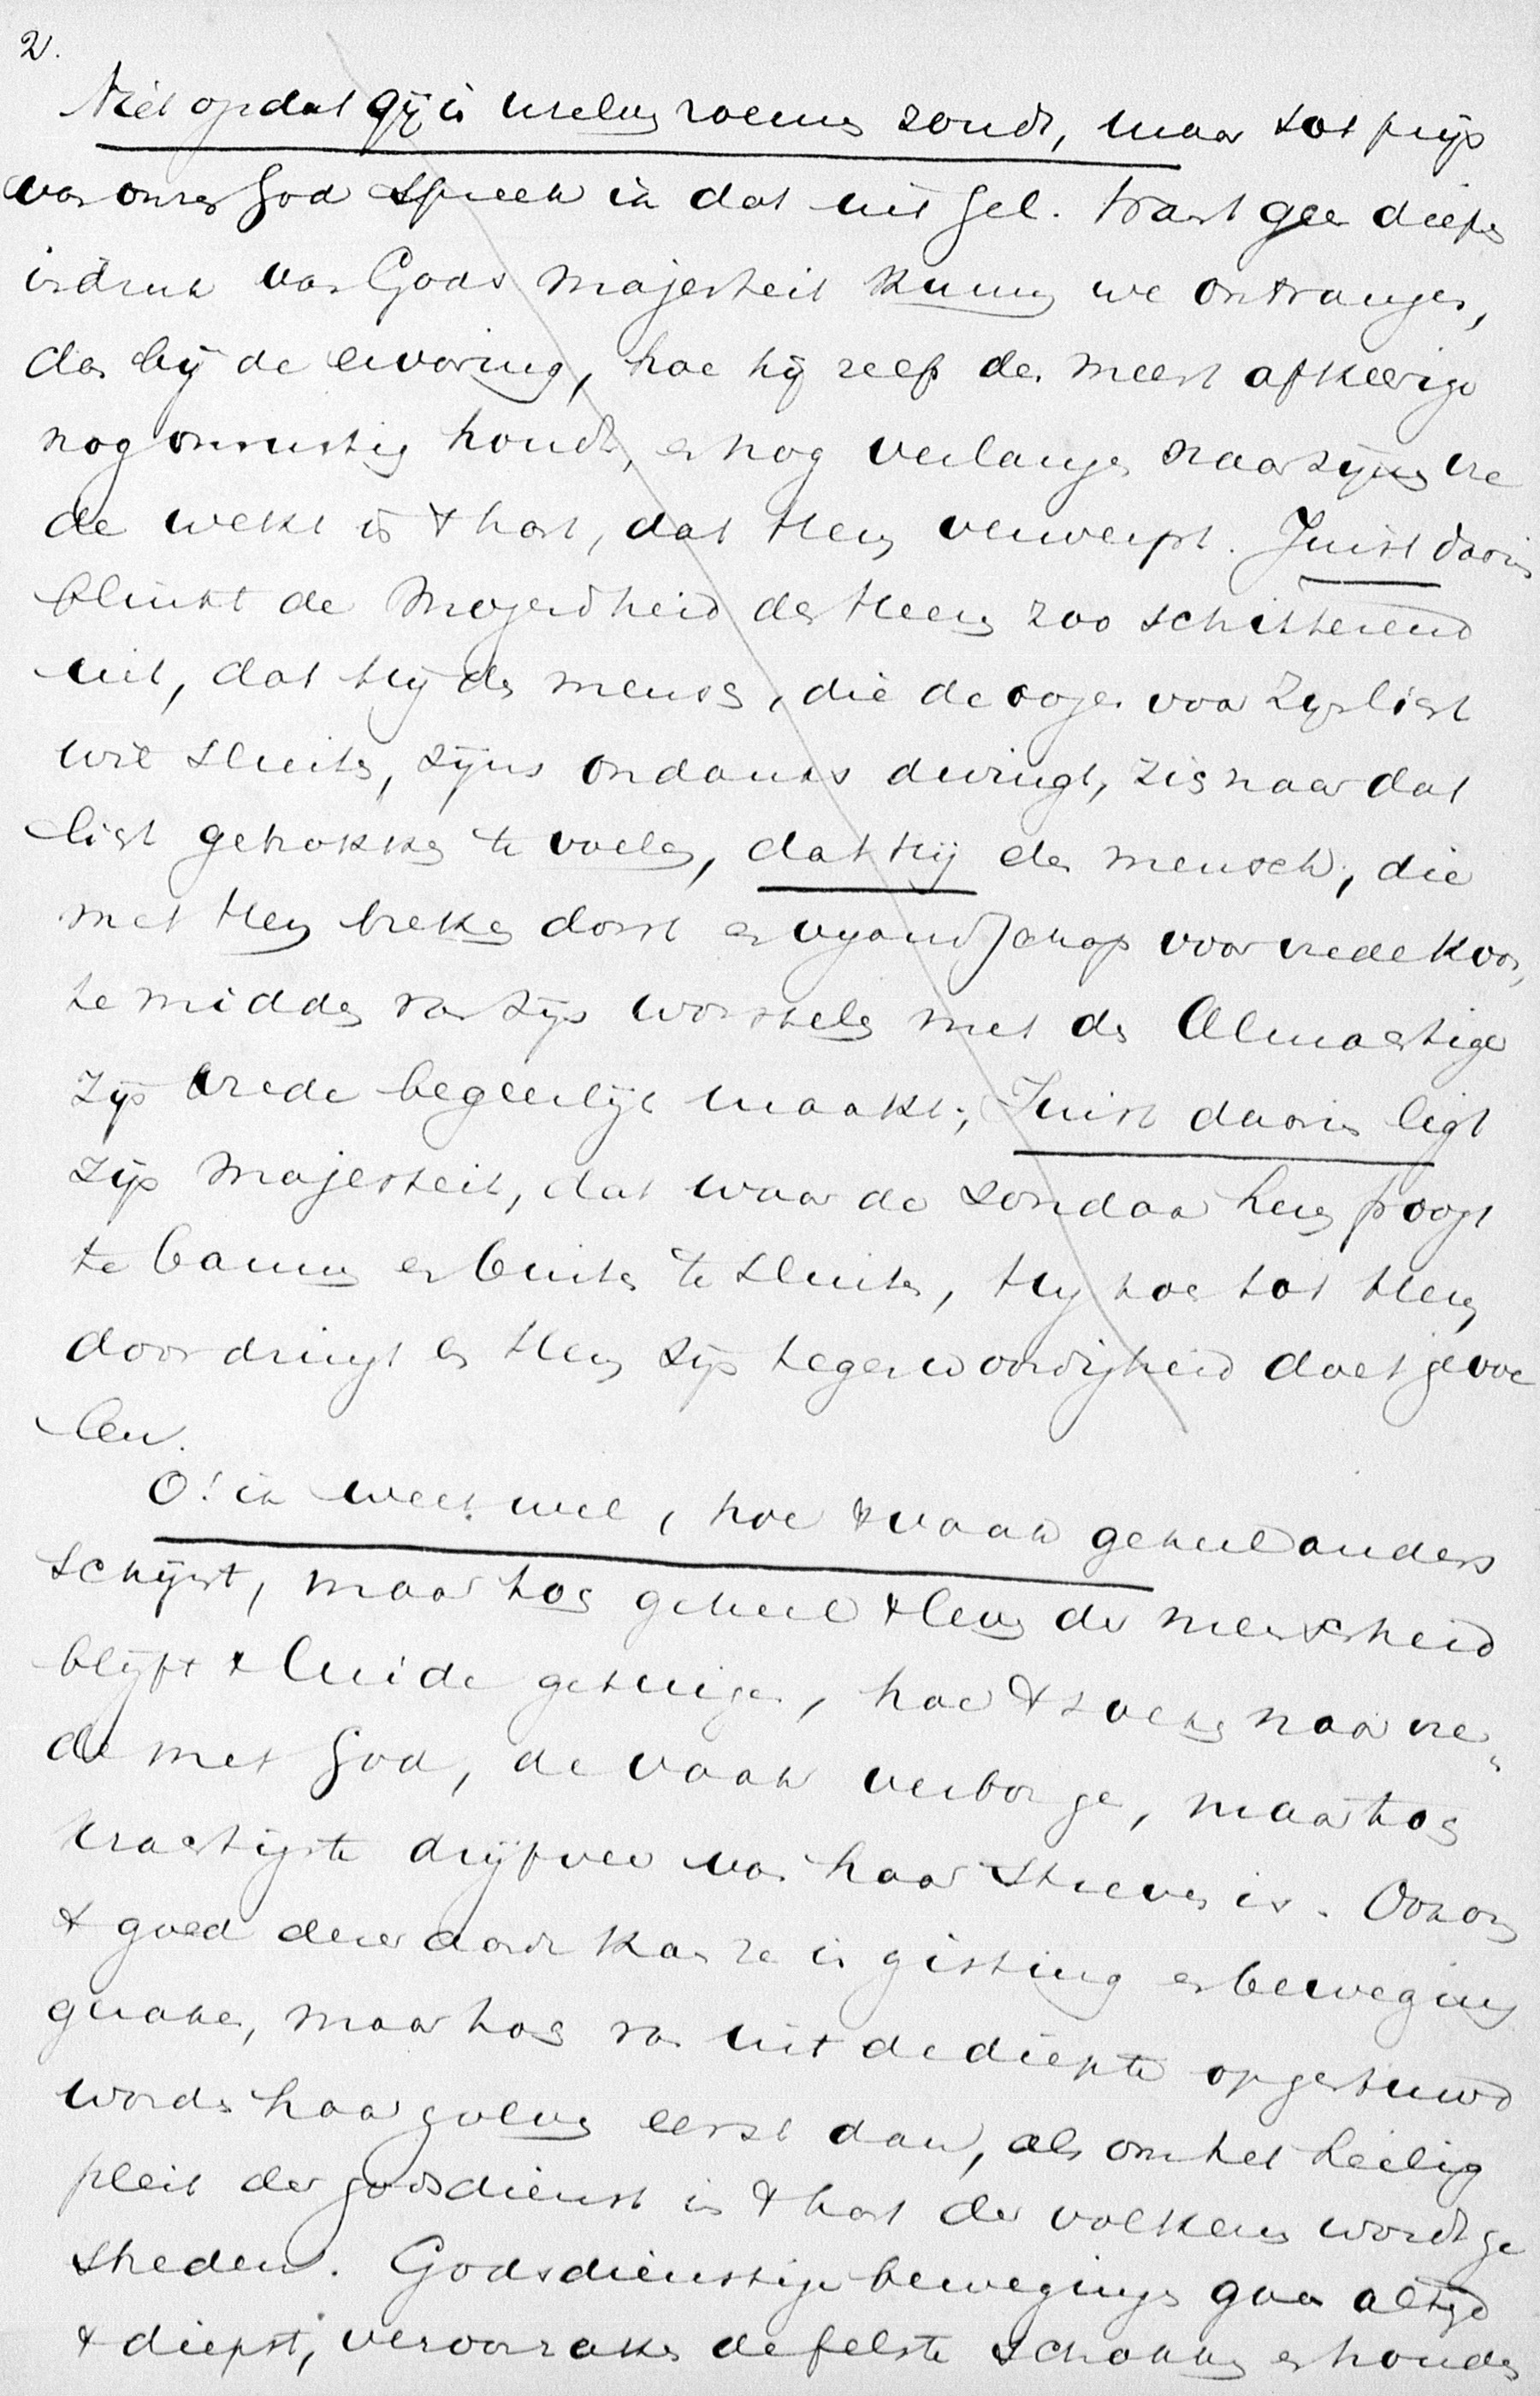 2.
Niet opdat gij in menschen roemen zoudt, maar tot prijs
van onzen God spreek ik dat uit Gel. Want geen dieper
indruk van Gods majesteit kunnen we ontvangen,
dan bij de ervaring, hoe hij zelf den meest afkeerige
nog onrustig houdt, en nog verlangen naar zijnen vre
de wekt in 't hart, dat Hem verwerpt. Juist daarin
blinkt de Mogendheid des Heeren zoo schitterend
uit, dat hij den mensch, die de oogen voor Zijn licht
wil sluiten, zijns ondanks dwingt, zich naar dat
licht getrokken te voelen, dat Hij den mensch, die
met Hem breken dorst en vyandschap voor vrede koos,
te midden van zijn worstelen met den Almachtige
zijn vrede begeerlijk maakt; Juist daarin ligt
zijn Majesteit, dat waar de zondaar hem poogt
te bannen en buiten te sluiten, Hij toch tot Hem
doordringt en Hem zijn tegenwoordigheid doet gevoe
len.
O! ik weet wel, hoe 't vaak geheel anders
schijnt, maar toch geheel 't leven der menschheid
blijft 't luide getuigen, hoe 't zoeken naar vre-
de met God, de vaak verborgen, maar toch
krachtigste drijfveer van haar streven is. Ook om
't goed dezer aarde kan ze in gisting en beweging
geraken, maar toch van uit de diepte opgestuwd
worden haar golven eerst dan, als om het heilig
pleit der godsdienst in 't hart der volkeren wordt ge
streden. Godsdienstige bewegingen gaan altijd
't diepst, veroorzaken de felste schokken en houden